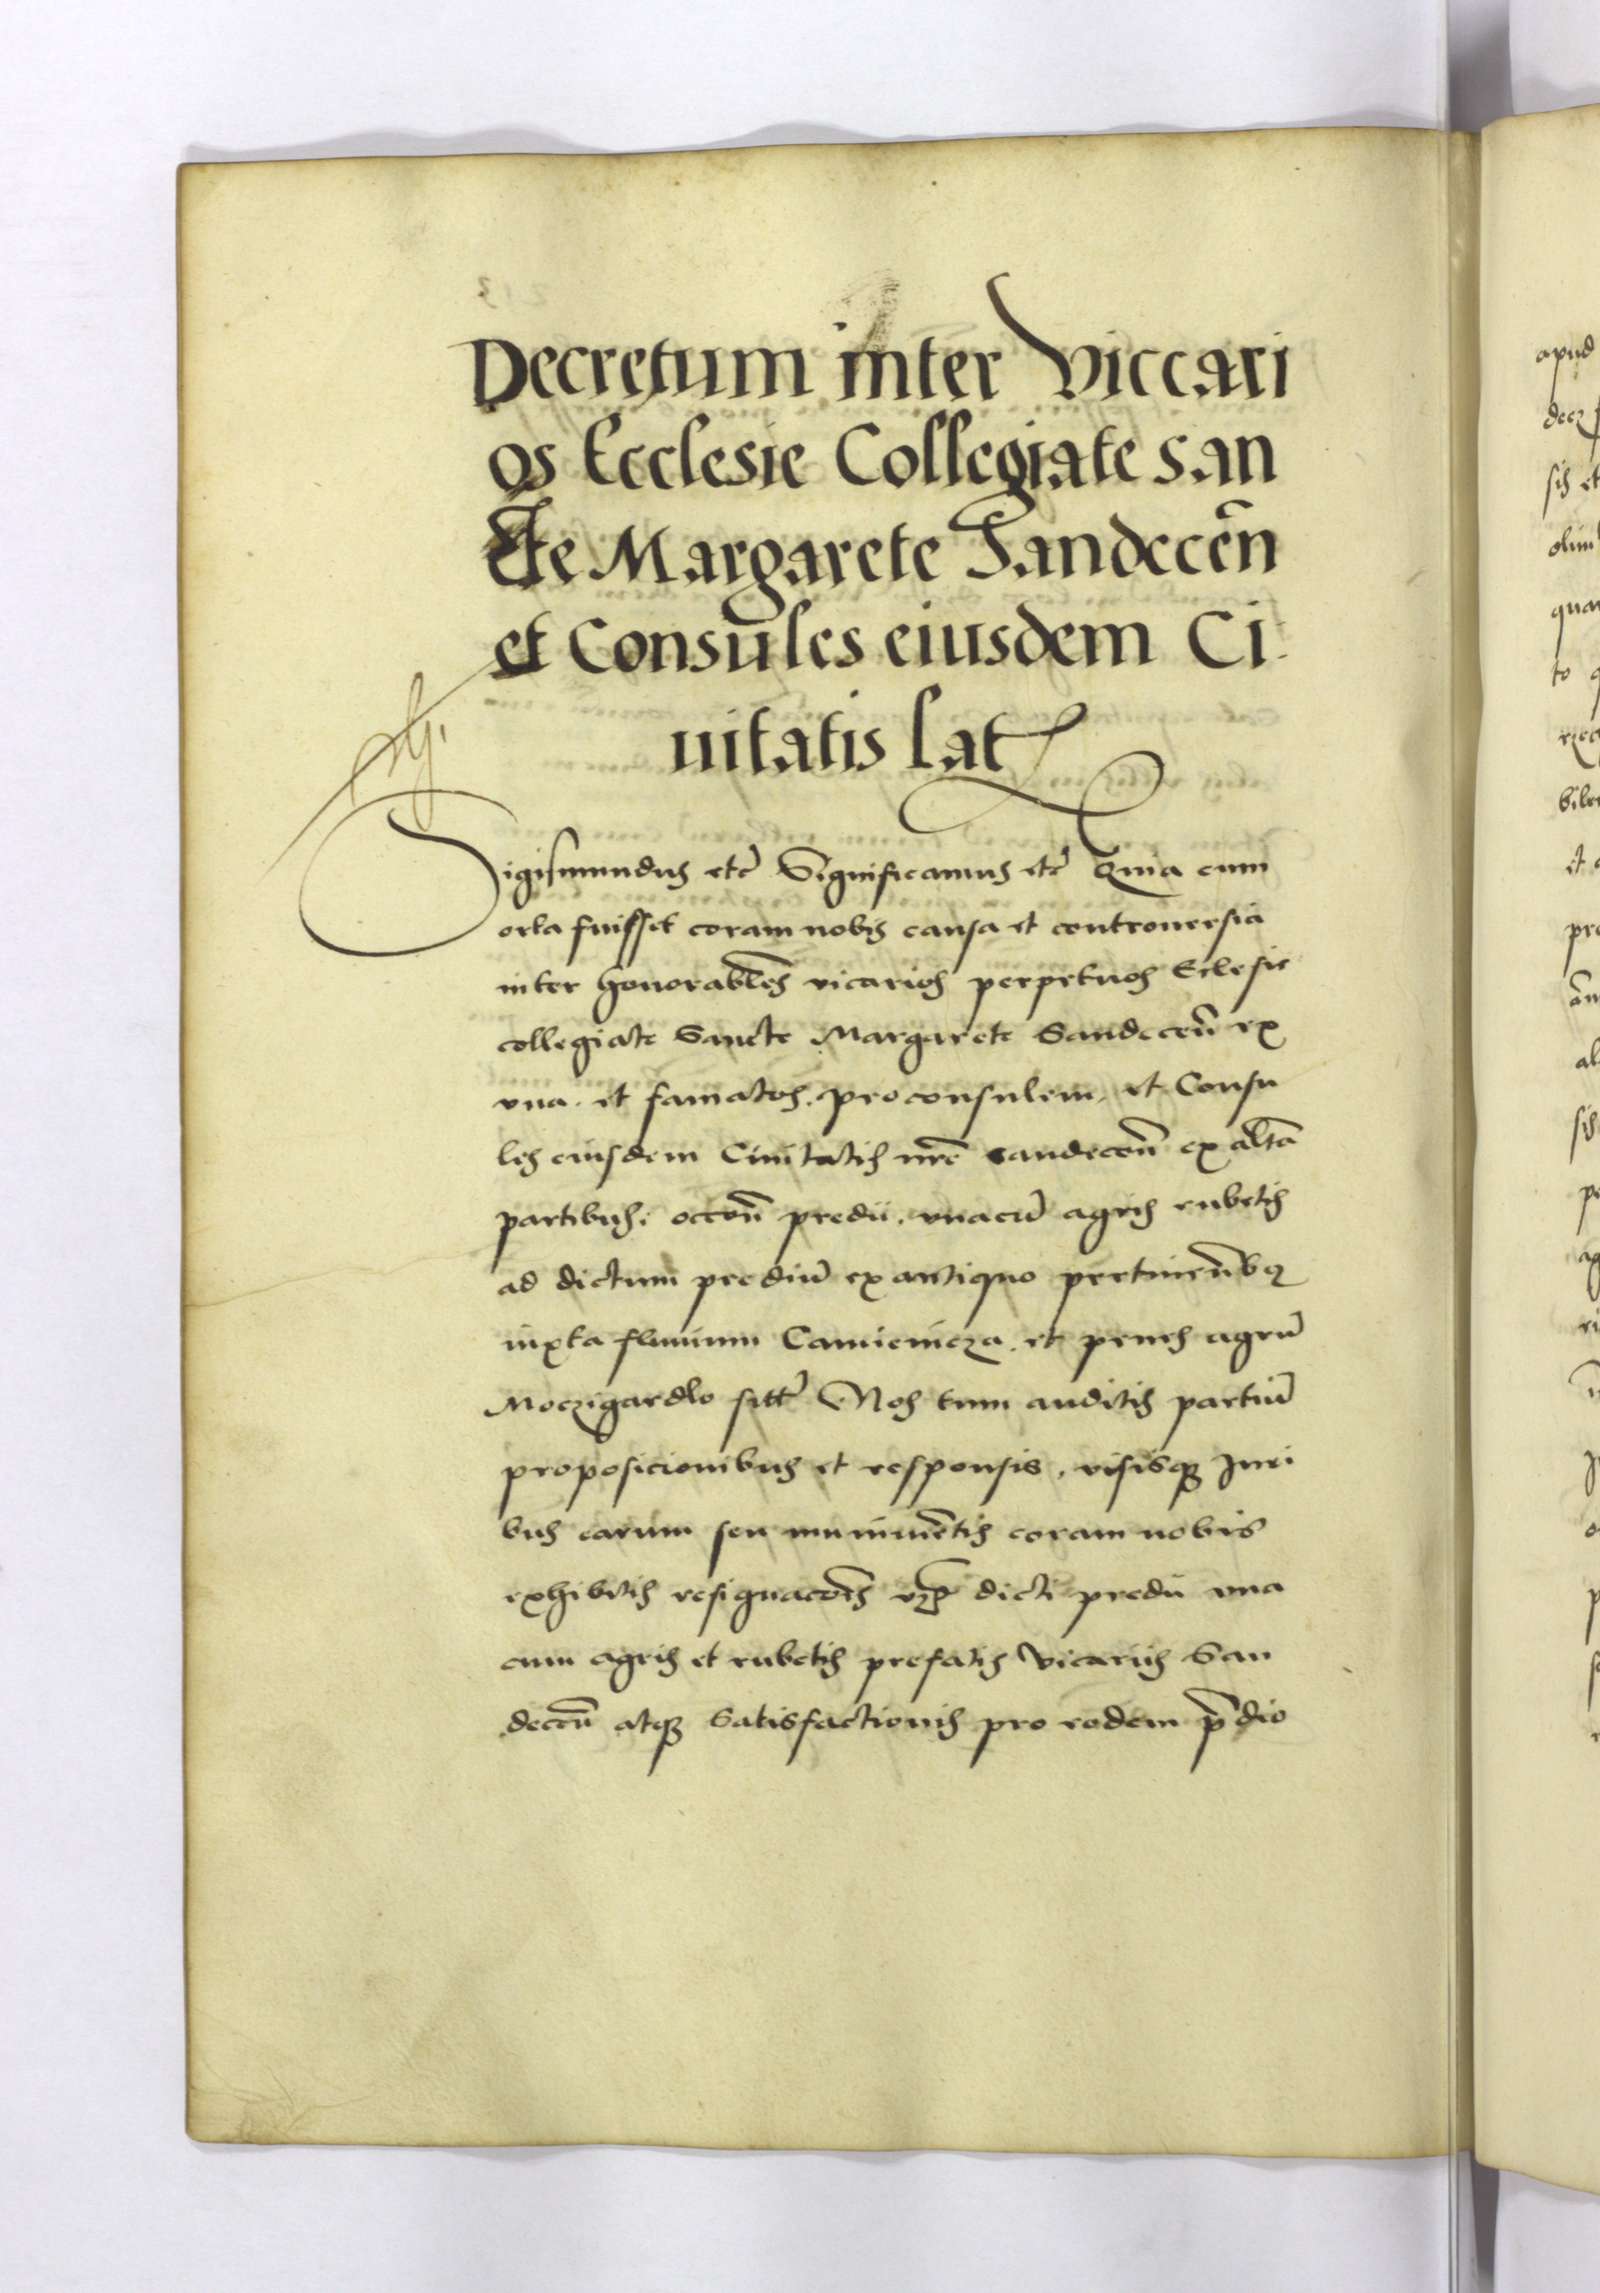 Decretum inter Viccari
os Ecclesie Collegiate san
cte Margarete Sandeceñ
et Consules eiusdem Ci
uitatis Lat
Sigismundus etc̃ Significamus etc̃ Quia cum
orta fuisset coram nobis causa et controuersia
inter honorabl̃es vicarios perpetuos Eclesie
collegiate Sancte Margarete Sandeceñ ex
vna et famatos proconsulem et Consu
les eiusdem Ciuitatis nr̃e Sandeceñ ex altã
partibus, occoñ predii, vnacũ agris rubetis
ad dictum prediũ ex antiquo pertineñ
iuxta fluuium Camienicza et penes agrũ
Moczigardlo sitt̃ Nos tum auditis partiũ
proposicionibus et responsis, visisqȝ Juri
bus earum seu munimẽtis coram nobis
exhibitis resignacõis dicti predii vna
cum agris et rubetis prefatis Vicariis San
deceñ atqȝ Satisfactionis pro eodem p̃dio
apud
sis et
olim
quam
to
et